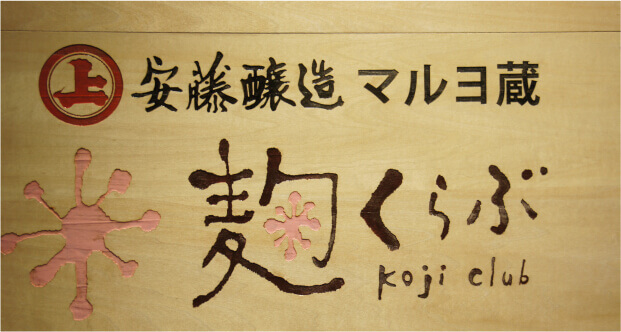 上 安藤醸造 マルヨ蔵
麹くらぶ
koji club